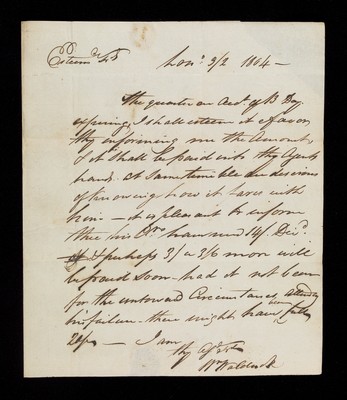 Esteem'd Fd
Lonn 3/2 1804 —
The quarter on Acct. of B Dy
expiring, I shall esteem it a favor
thy informing me the Amount,
& it shall be paid into thy Agents
hands. At same time I am desirous
of knowing how it fares with
him — it is pleasant to inform
thee his have recd 14/. Divd.
& perhaps 3/ a 3/6 more will
be paid soon — had it not been
for the untoward Circumstances attending
his failure — there might have been fully
20/ — I am
thy
Wm